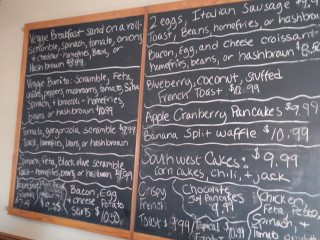 Veggie Breakfast sand on a roll:
Scramble, Spinach, tomato, onions
+ cheddar - homefries, Beans, or
Hash brown $8.99
Veggie Burrito: Scramble, Feta,
peppers, mushrooms, tomato, Salsa
Spinach, + broccoli - homefries,
beans or hashbrown
Tomato, gorgonzola, scramble
Toast, homefries, Beans, or hashbrown
Spinach, feta, Black olive scramble
Toast
Bacon, Egg,
+ cheese Potato
Skins $10.50
2 eggs, Italian Sausage $9.99
Toast, Beans, homefries, or hashbrown
Bacon, Egg, and Cheese croissant -
homefries, beans, or hashbrown $8.50
Blueberry, coconut, stuffed
French Toast $10.99
Apple Cranberry Pancakes $9.99
Banana Split waffle $10.99
Southwest Cakes: $9.99
corn cakes, chili, + jack
Crispy
French
Toast
Chocolate
Pancakes
9.99
Tropical
Chicken,
Feta, Pesto,
Spinach +
Tomato